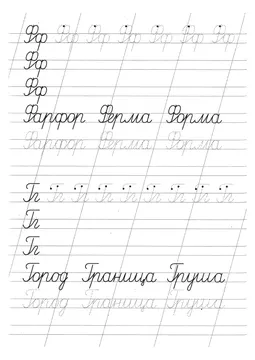 Фф Фф Фф Фф Фф Фф Фф
Фф
Фф
Фарфор Ферма Форма
Фарфор Ферма Форма
Гг Гг Гг Гг Гг Гг Гг Гг
Гг
Гг
Город Граница Груша
Город Граница Груша